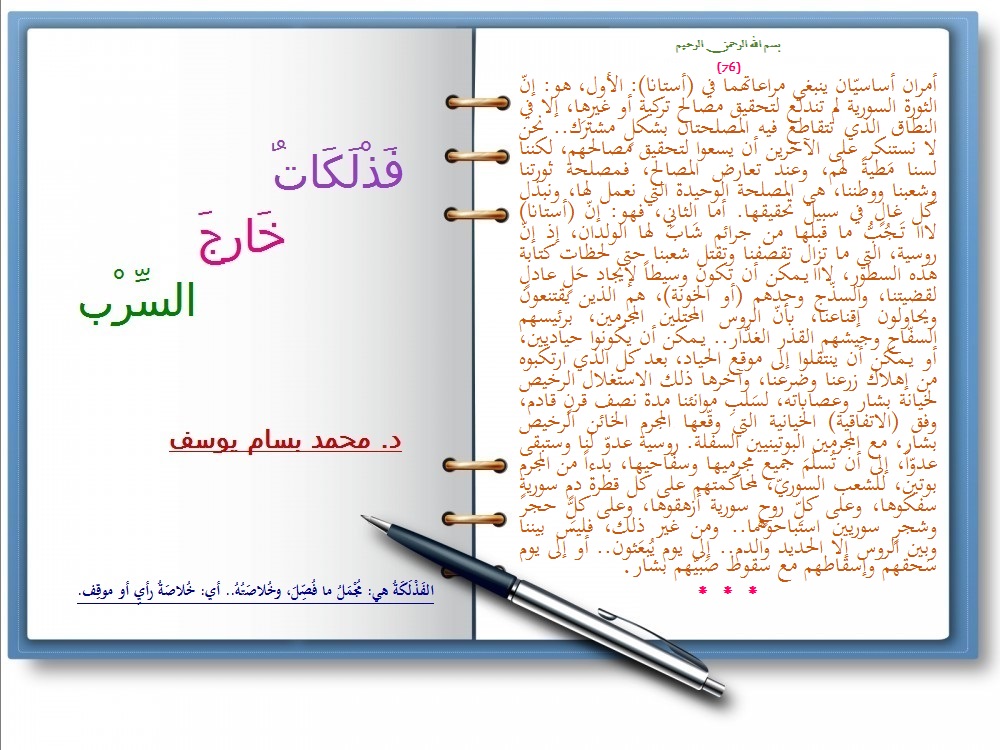 بسم الله الرحمن الرحيم
(76)
أمران أساسيّان ينبغي مراعاتهما في (أستانا): الأول، هو: إنّ
الثورة السورية لم تندلع لتحقيق مصالح تركية أو غيرها، إلا في
النطاق الذي تتقاطع فيه المصلحتان بشكلٍ مشترَك.. نحن
لا نستنكر على الآخرين أن يسعوا لتحقيق مصالحهم، لكننا
لسنا مَطيةً لهم، وعند تعارض المصالح، فمصلحة ثورتنا
وشعبنا ووطننا، هي المصلحة الوحيدة التي نعمل لها، ونبذل
كل غالٍ في سبيل تحقيقها. أما الثاني، فهو: إنّ (أستانا)
لاا تَجُبُّ ما قبلها من جرائم شابَ لها الولدان، إذ إنّ
روسية، التي ما تزال تقصفنا وتقتل شعبنا حتى لحظات كتابة
هذه السطور، لاا يمكن أن تكون وسيطاً لإيجاد حَلٍ عادلٍ
لقضيتنا، والسذّج وحدهم (أو الخونة)، هم الذين يقتنعون
ويحاولون إقناعنا، بأنّ الروس المحتلين المجرمين، برئيسهم
السفّاح وجيشهم القذر الغدّار.. يمكن أن يكونوا حياديين،
أو يمكن أن ينتقلوا إلى موقع الحياد، بعد كل الذي ارتكبوه
من إهلاك زرعنا وضرعنا، وآخرها ذلك الاستغلال الرخيص
لخيانة بشار وعصاباته، لسَلبِ موانئنا مدة نصف قرنٍ قادم،
وفق (الاتفاقية) الخيانية التي وقّعها المجرم الخائن الرخيص
بشار، مع المجرمين البوتينيين السفلة. روسية عدوّ لنا وستبقى
عدوّاً، إلى أن تُسلمَ جميع مجرميها وسفّاحيها، بدءاً من المجرم
بوتين، للشعب السوريّ، لمحاكمتهم على كل قطرة دمٍ سوريةٍ
سفكوها، وعلى كلّ روحٍ سورية أزهقوها، وعلى كلّ حجرٍ
وشجرٍ سوريين استباحوهما.. ومن غير ذلك، فليس بيننا
وبين الروس إلا الحديد والدم.. إلى يوم يُبعَثون.. أو إلى يوم
سَحقهم وإسقاطهم مع سقوط صَبيّهم بشار.
* * *
فَذْلَكَاتٌ
خَارجَ
السِّرْب
د. محمد بسام يوسف
الفَذْلَكَةُ هي: مُجْمَلُ ما فُصِّلَ، وخُلاصَتُهُ.. أي: خُلاصَةُ رأيٍ أو موقِف.